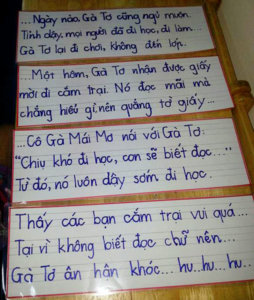 ...Ngày nào, Gà Tơ cũng ngủ muộn.
Tỉnh dậy, mọi người đã đi học, đi làm...
Gà Tơ lại đi chơi, không đến lớp.
...Một hôm, Gà Tơ nhận được giấy
mời đi cắm trại. Nó đọc mãi mà
chẳng hiểu gì, nên quẳng tờ giấy...
...Cô Gà Mái Mơ nói với Gà Tơ:
"Chịu khó đi học, con sẽ biết đọc..."
Từ đó, nó luôn dậy sớm đi học.
Thấy các bạn cắm trại vui quá...
Tại vì không biết đọc chữ nên...
Gà Tơ ân hận khóc... hu...hu...hu..